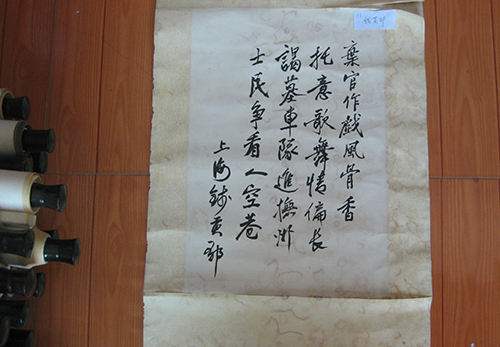 棄官作戲風骨香
托意歌舞情偏長
謁墓車隊進撫州
士民争看人空巷
上海钱英郁